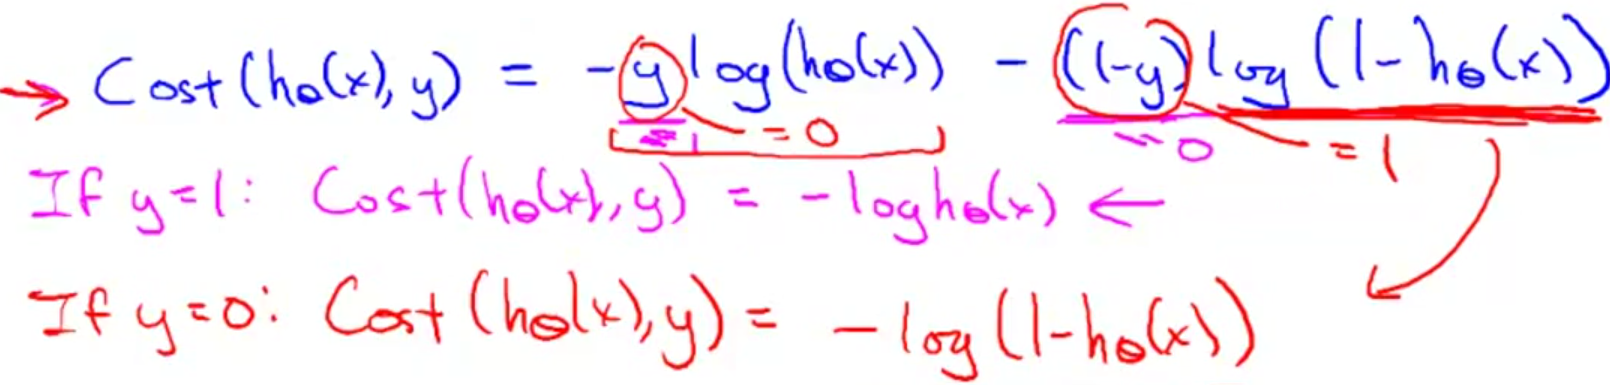 → Cost(hθ(x), y) = -y log(hθ(x)) - (1-y) log(1-hθ(x))
=1 = 0 = 0 = 1
If y=1: Cost(hθ(x), y) = -log hθ(x) ←
If y=0: Cost(hθ(x), y) = -log(1-hθ(x))